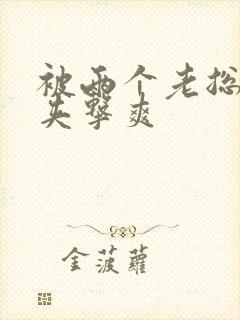 被两个老总
夹击爽
金菠萝